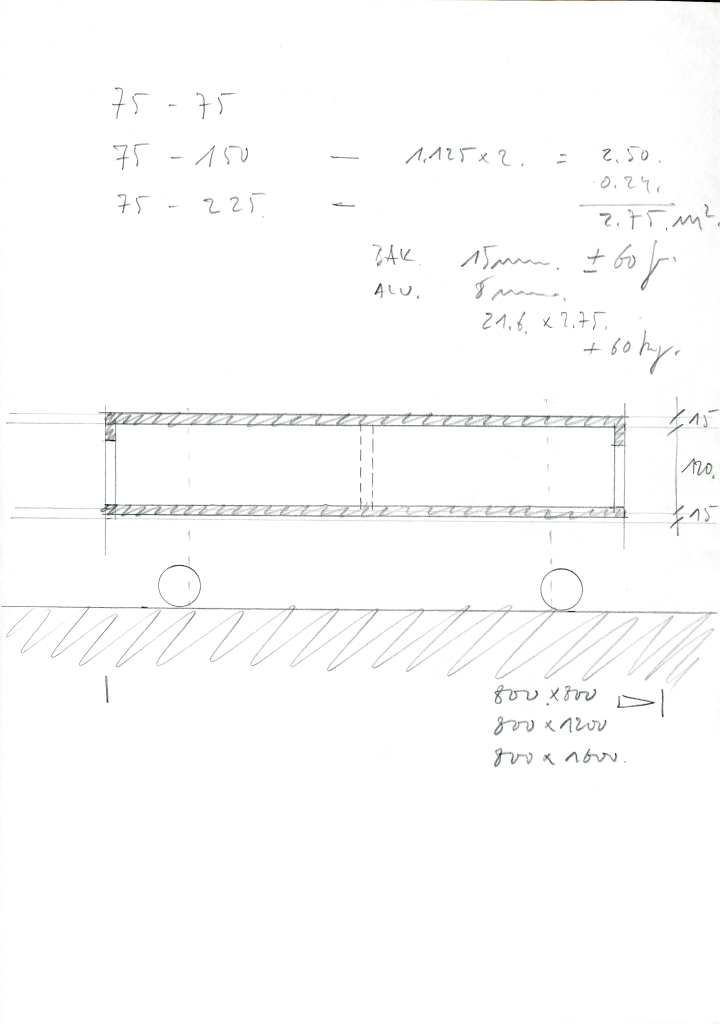 75 - 75
75 - 150 — 1.125 x 2. = 2.50.
0.24.
75 - 225. — 2.75. m².
15mm. ± 60
ALU. 8 mm.
21.6. x 2.75.
± 60 kg.
15
120.
15
800 x 800
800 x 1200
800 x 1600.